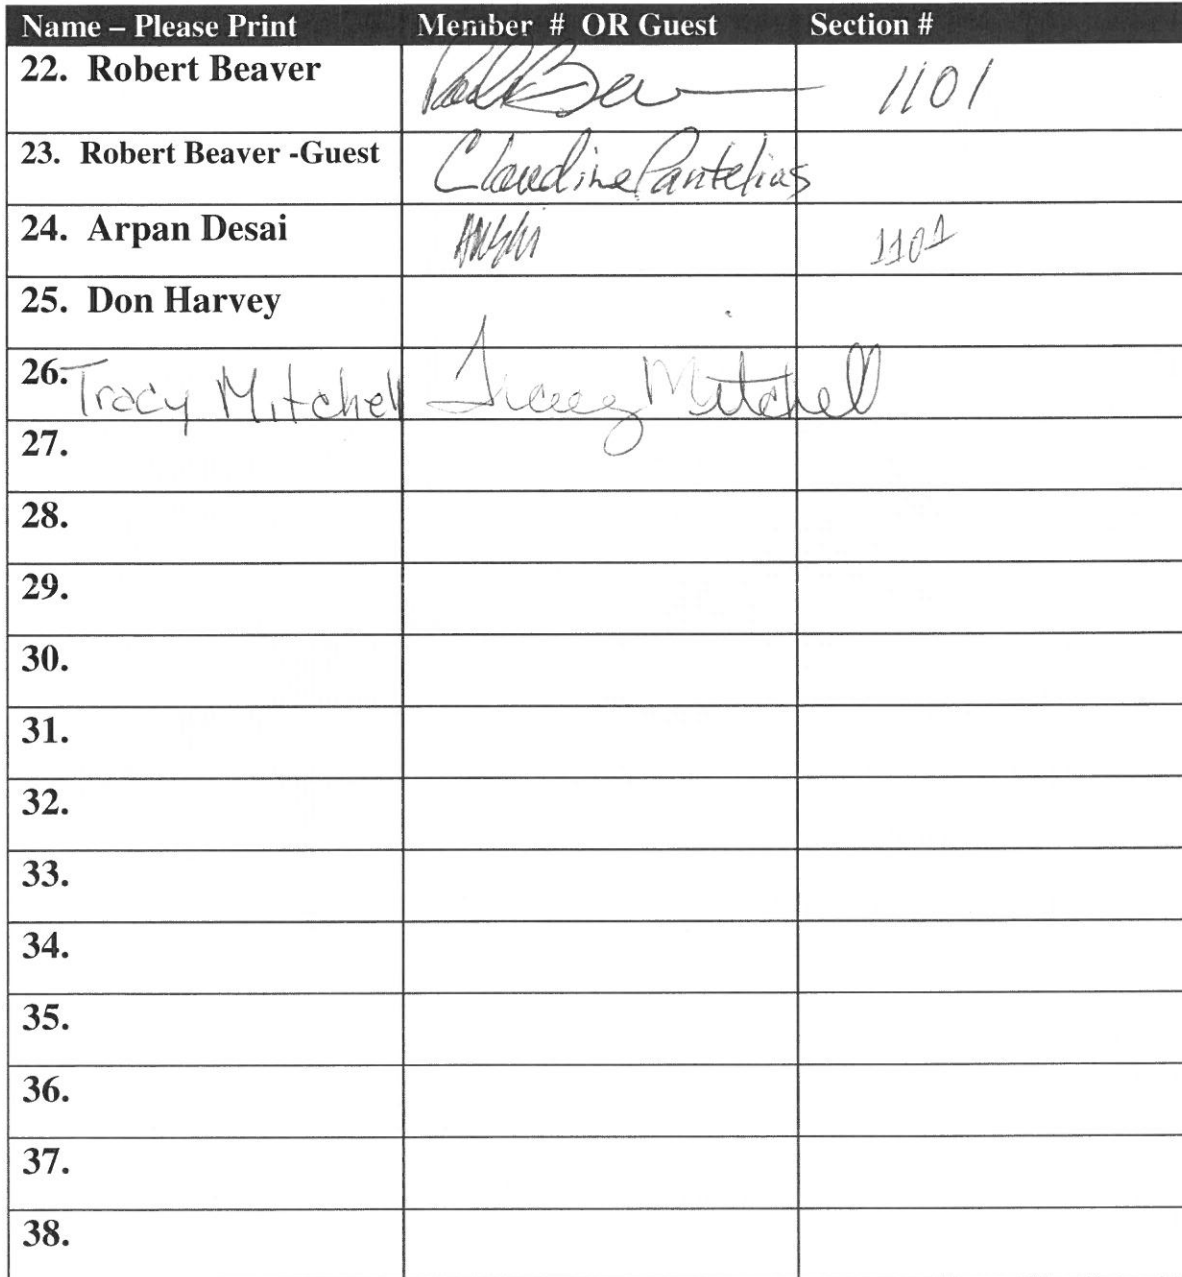 Name – Please Print Member # OR Guest Section #
22. Robert Beaver 1101
23. Robert Beaver -Guest Claudine Pantelias
24. Arpan Desai 1101
25. Don Harvey
26. Tracy Mitchell Tracy Mitchell
27.
28.
29.
30.
31.
32.
33.
34.
35.
36.
37.
38.